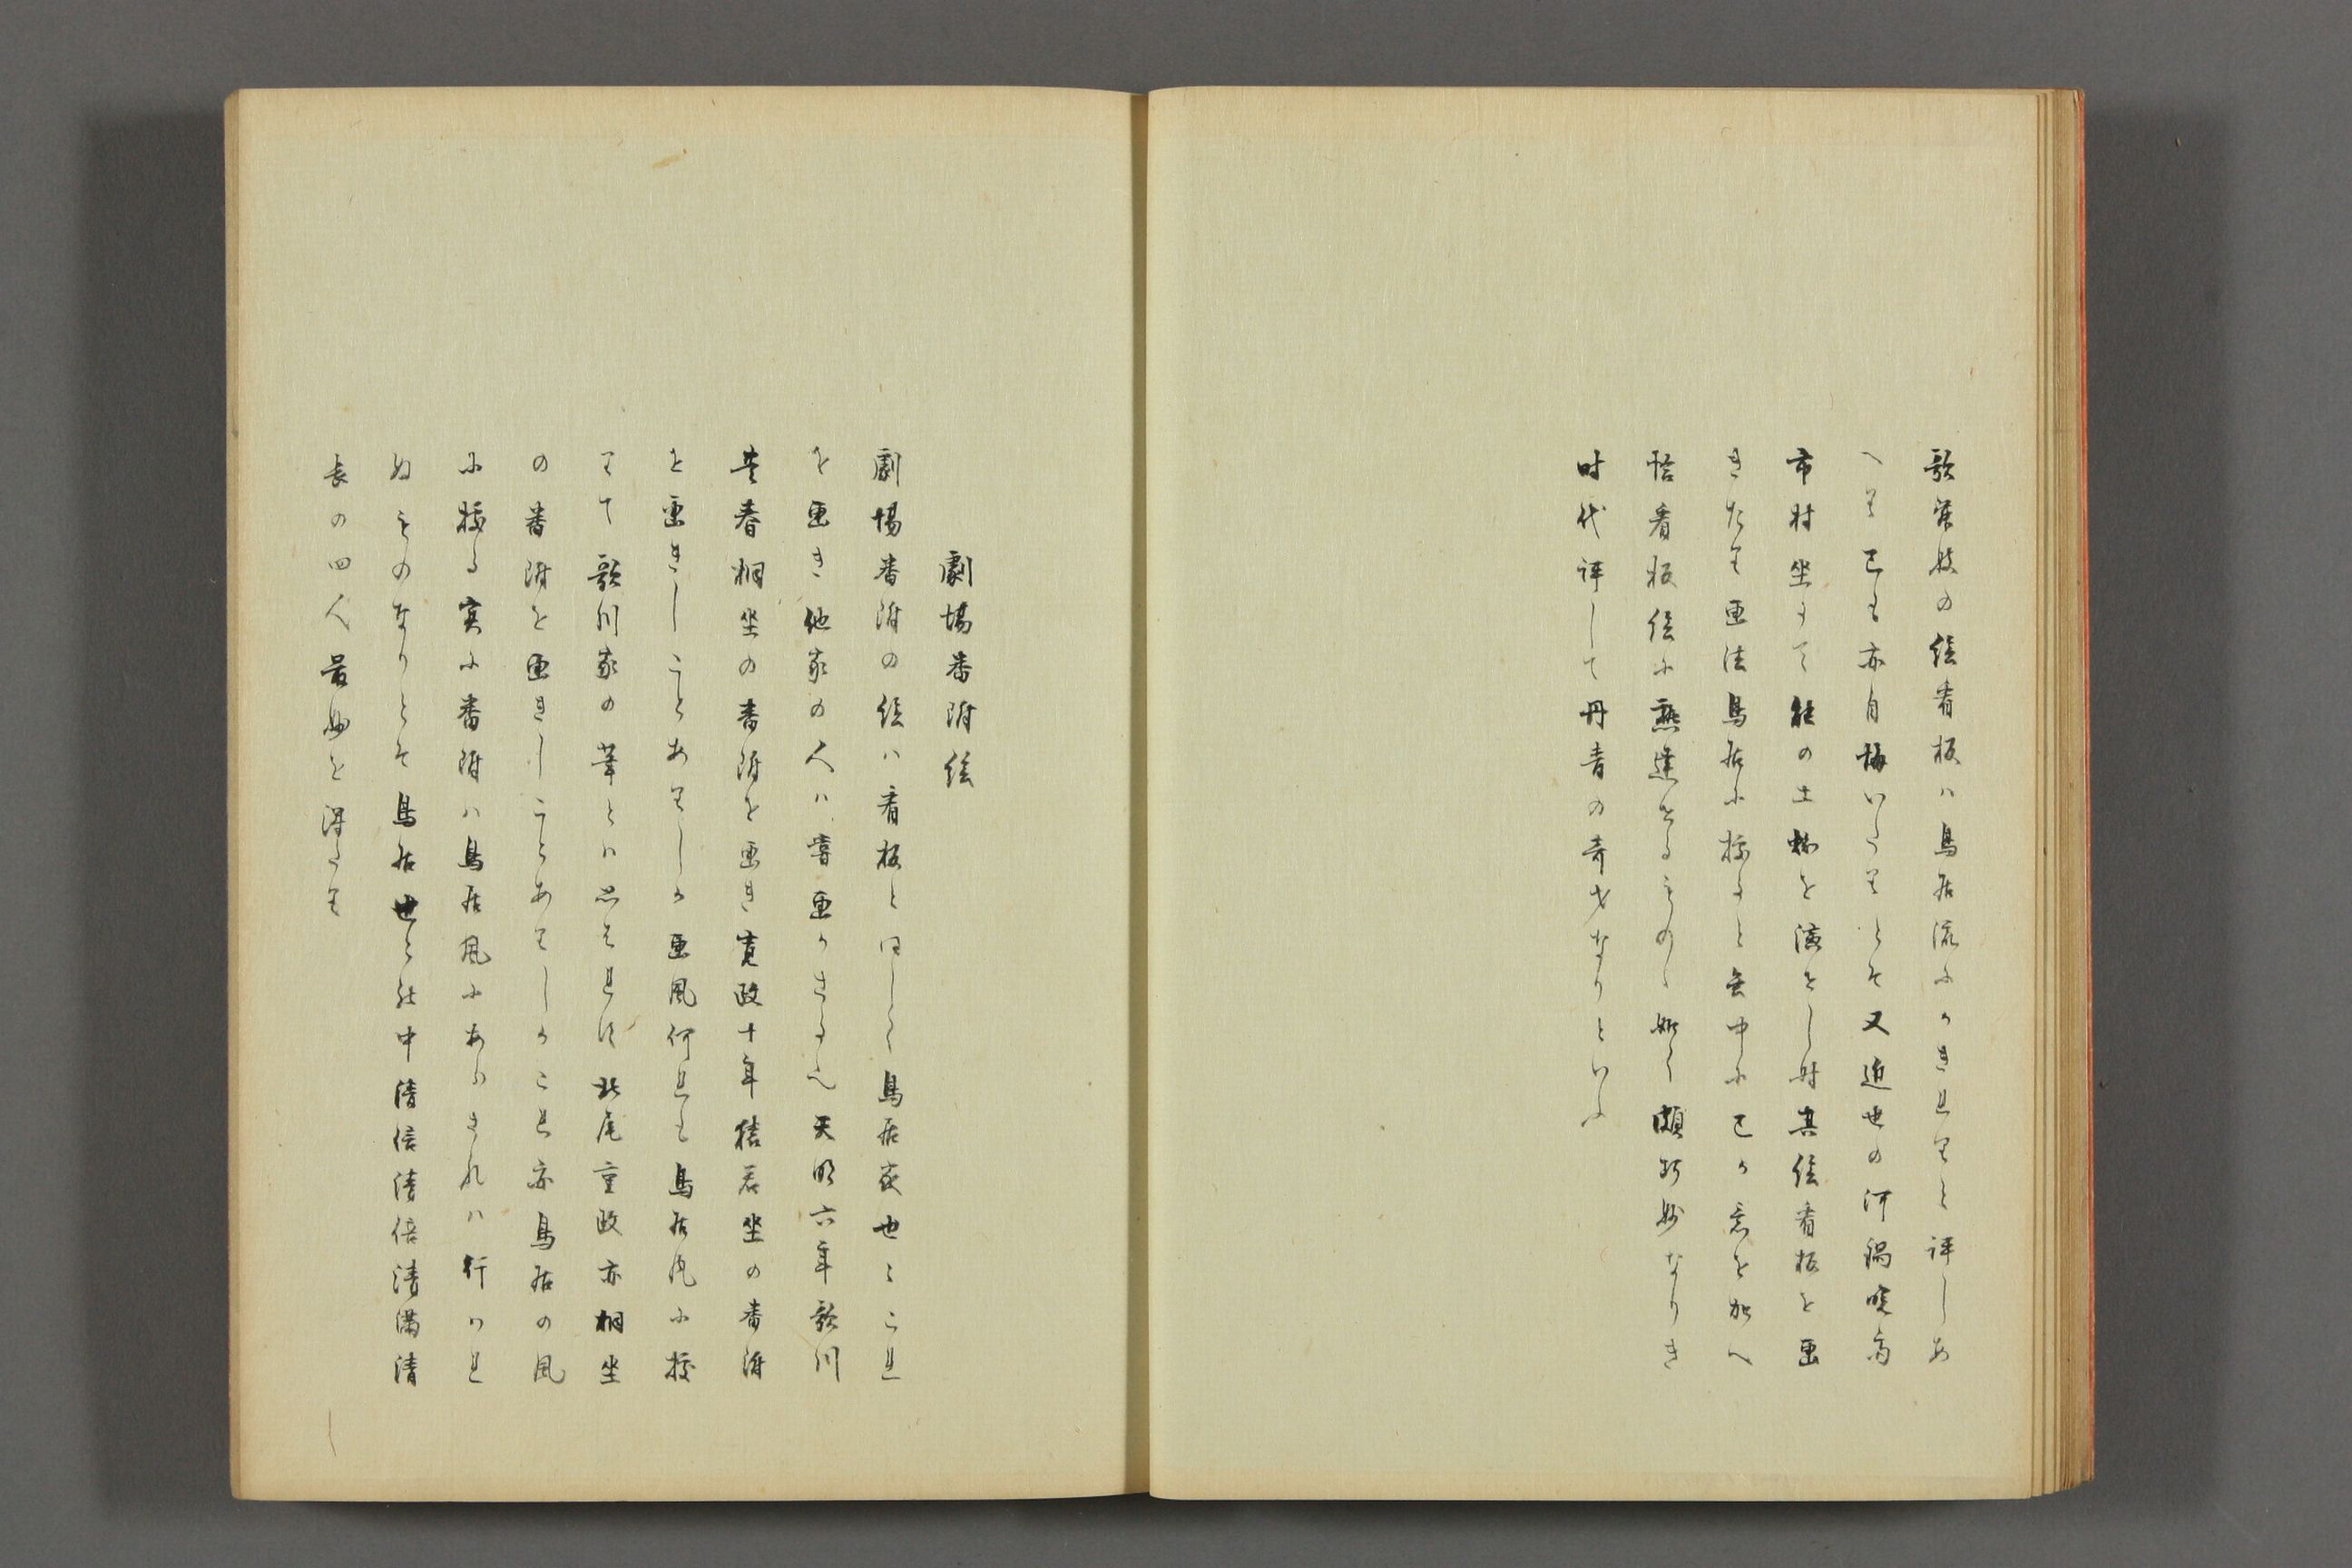 歌舞妓の絵看板ハ鳥居流にかきれりと評しあ
へり己も亦自悔いたりとそ又近世の河鍋暁斎
市村坐にて能の土蛛を演せし時其絵看板を画
きたり画法鳥居に拠すと雖中に己か意を加へ
恰看板絵に熟達せるものゝ如く頗巧妙なりき
時代評して丹青の奇才なりといふ
劇場番附絵
劇場番附の絵ハ看板と同しく鳥居家世々これ
を画き他家の人ハ嘗画かさる也天明六年歌川
豊春桐坐の番附を画き寛政十年 坐の番附
を画きしことありしか画風何れも鳥居風に拠
りて歌川家の筆とハ思はれす北尾重政亦桐坐
の番附を画きしことありしかこれ亦鳥居の風
に拠る実に番附ハ鳥居風にあらされハ行ハれ
ぬものなりとそ鳥居世々の中清信清倍清満清
長の四人最妙を得たり